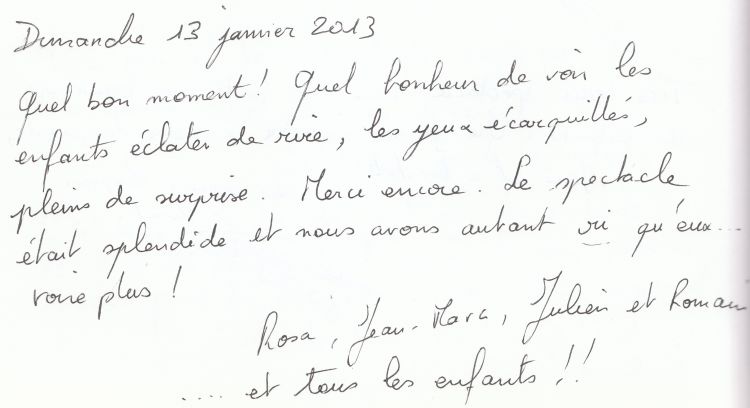 Dimanche 13 janvier 2013
Quel bon moment ! Quel bonheur de voir les
enfants éclater de rire, les yeux écarquillés,
pleins de surprise. Merci encore. Le spectacle
était splendide et nous avons autant ri qu'eux...
voire plus !
Rosa, Jean-Marc, Julien et Romain
.... et tous les enfants !!